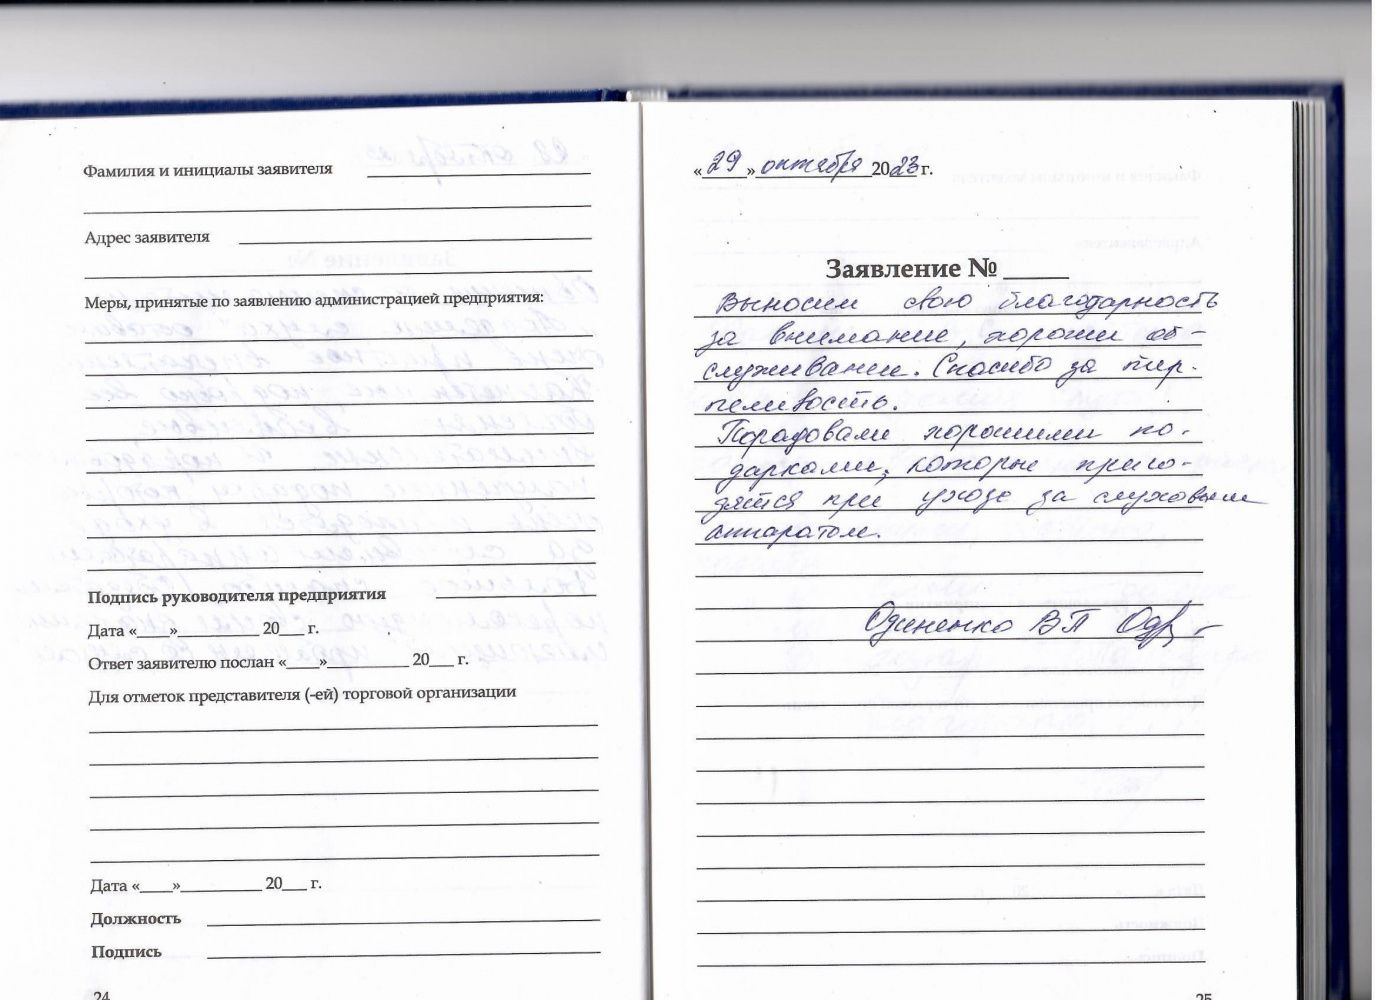 Фамилия и инициалы заявителя
Адрес заявителя
Меры, принятые по заявлению администрацией предприятия:
Подпись руководителя предприятия
Дата «____»__________ 20___ г.
Ответ заявителю послан «____»__________ 20___ г.
Для отметок представителя (-ей) торговой организации
Дата «____»__________ 20___ г.
Должность
Подпись
24
«29» октября 2023 г.
Заявление № _____
Выносим свою благодарность
за внимание, хороши об-
служивание. Спасибо за тер-
пеливость.
Порадовали хорошими по-
дарками, которые приго-
дятся при уходе за слуховым
аппаратом.
Одиненко В П
25